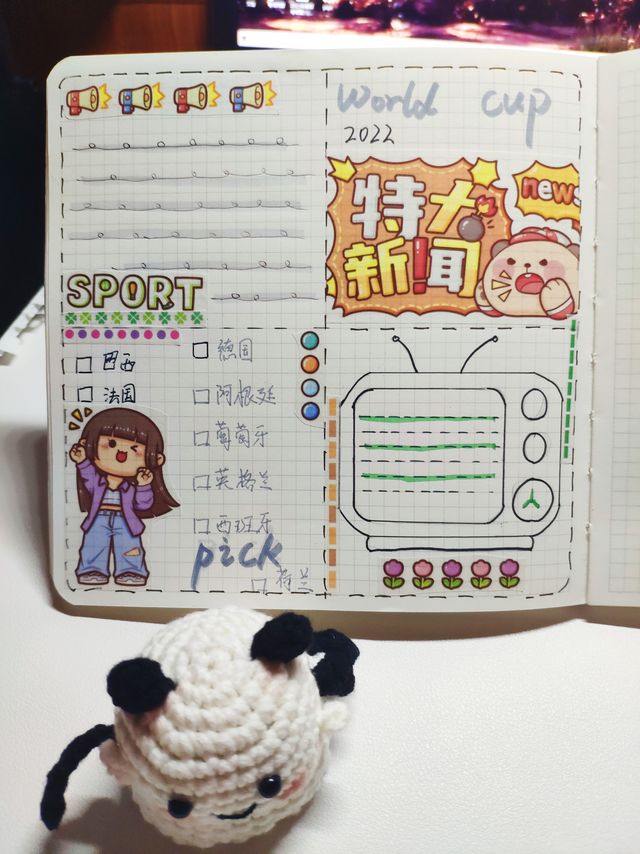 World cup
2022
特大
news
新!闻
SPORT
巴西
法国
德国
阿根廷
葡萄牙
英格兰
西班牙
pick
荷兰